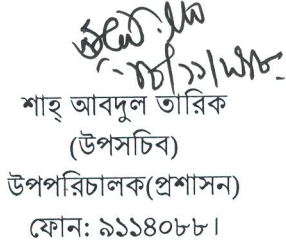 শাহ্ আবদুল তারিক
(উপসচিব)
উপপরিচালক(প্রশাসন)
ফোন: ৯১১৪০৮৮।